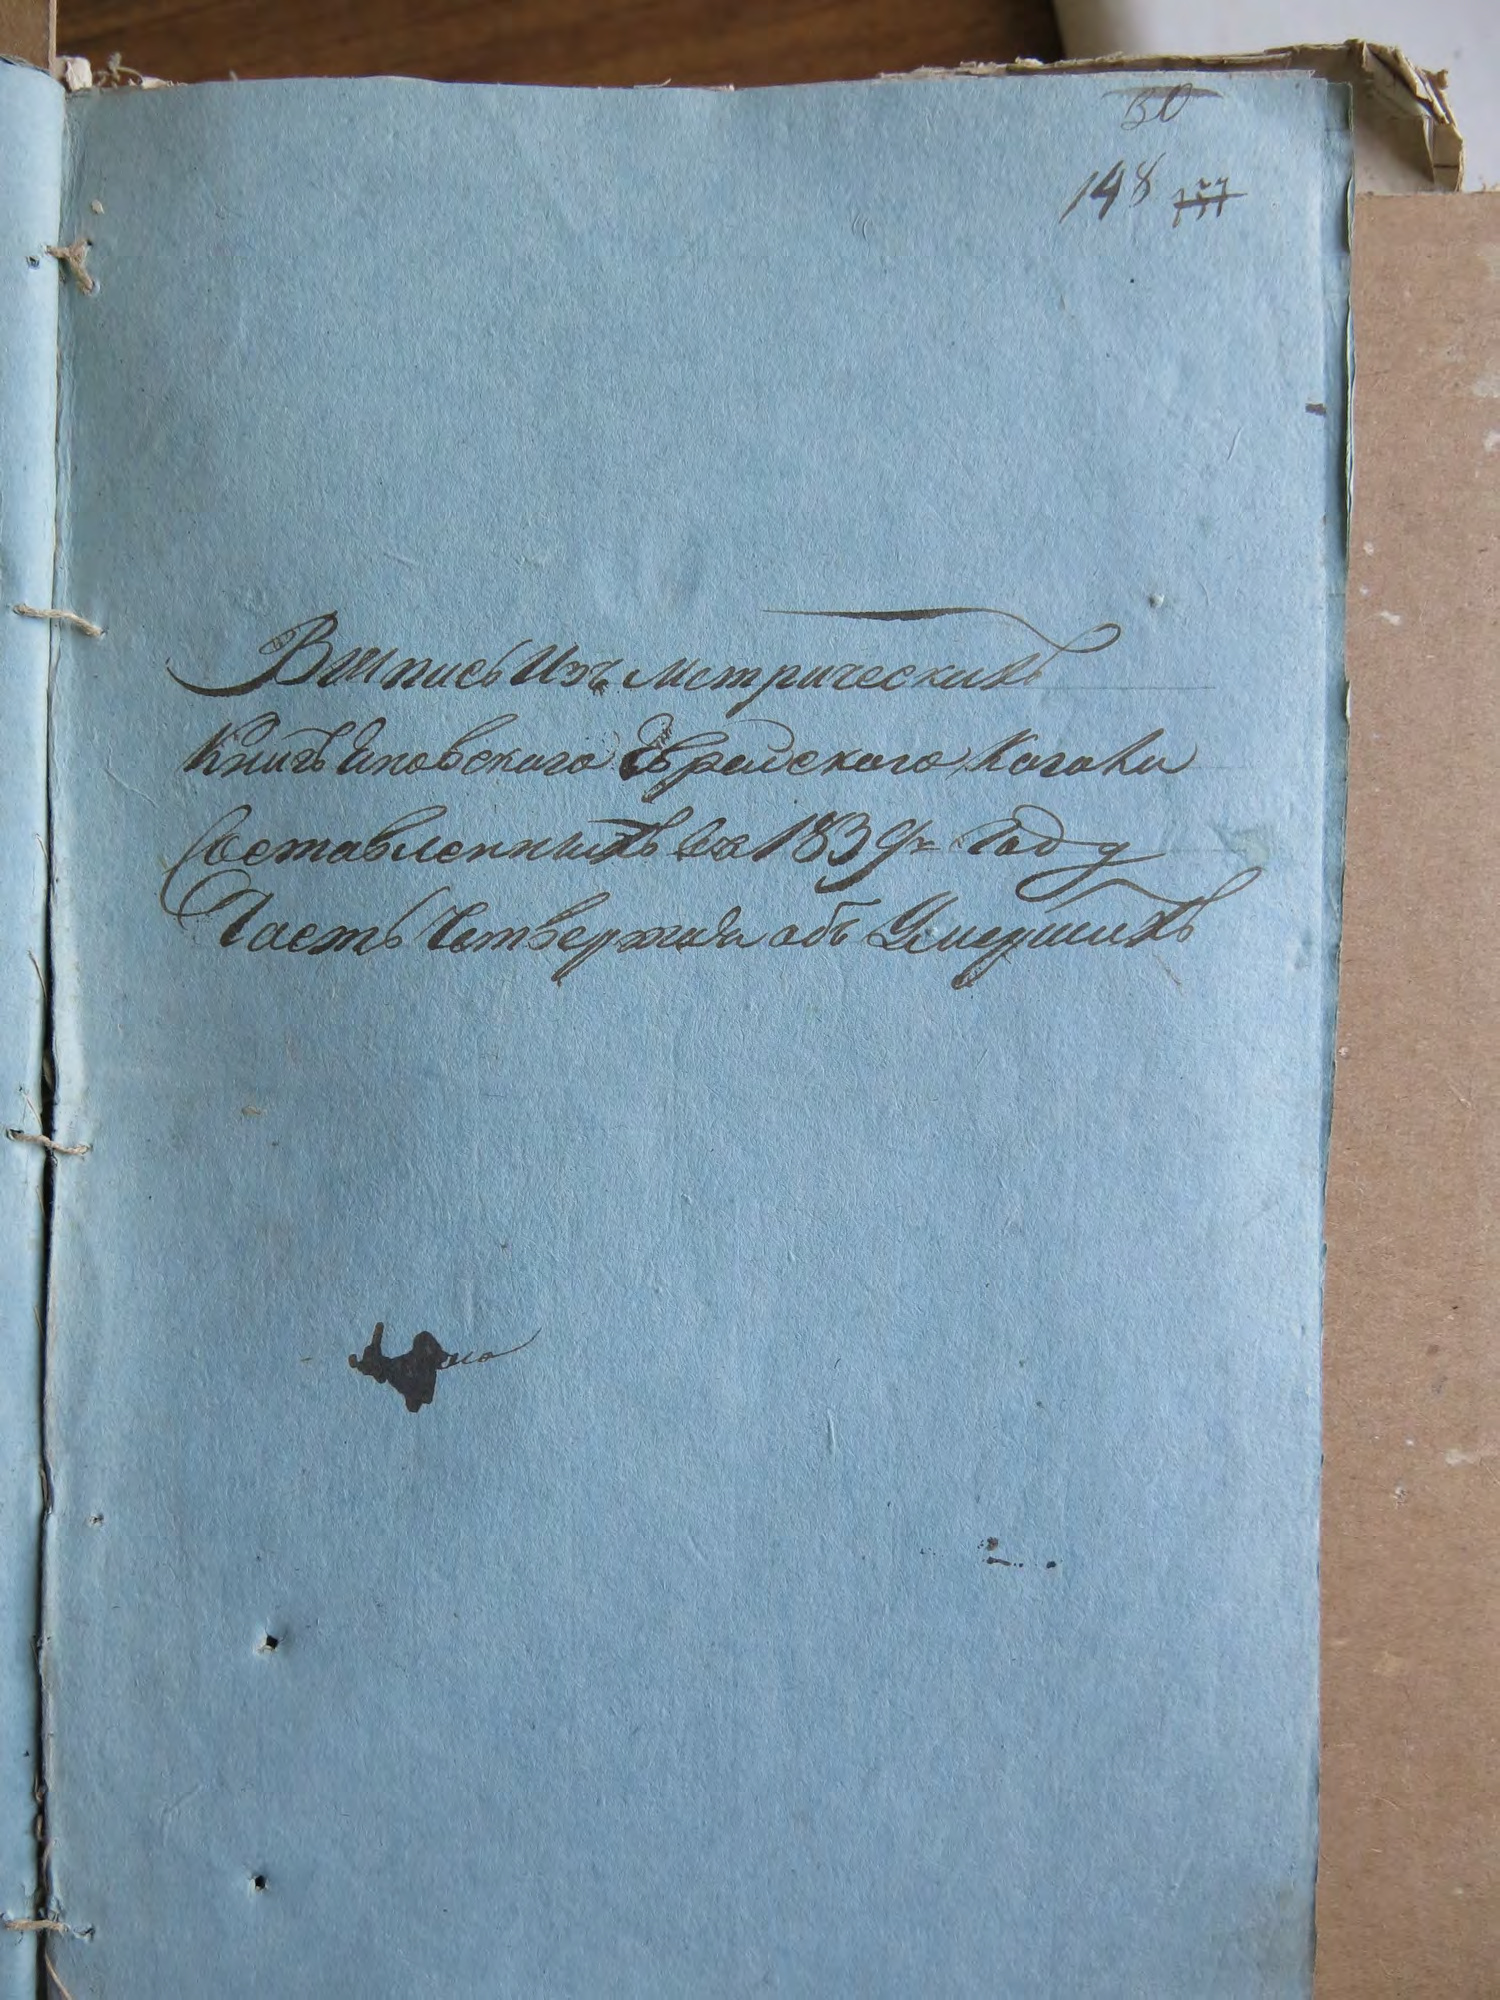 30
148
Выпись Изъ метрическихъ
Книгъ Яновского Еврейского Кагала
Составленныхъ въ 1839м Году
Часть Четвертая объ Умершихъ